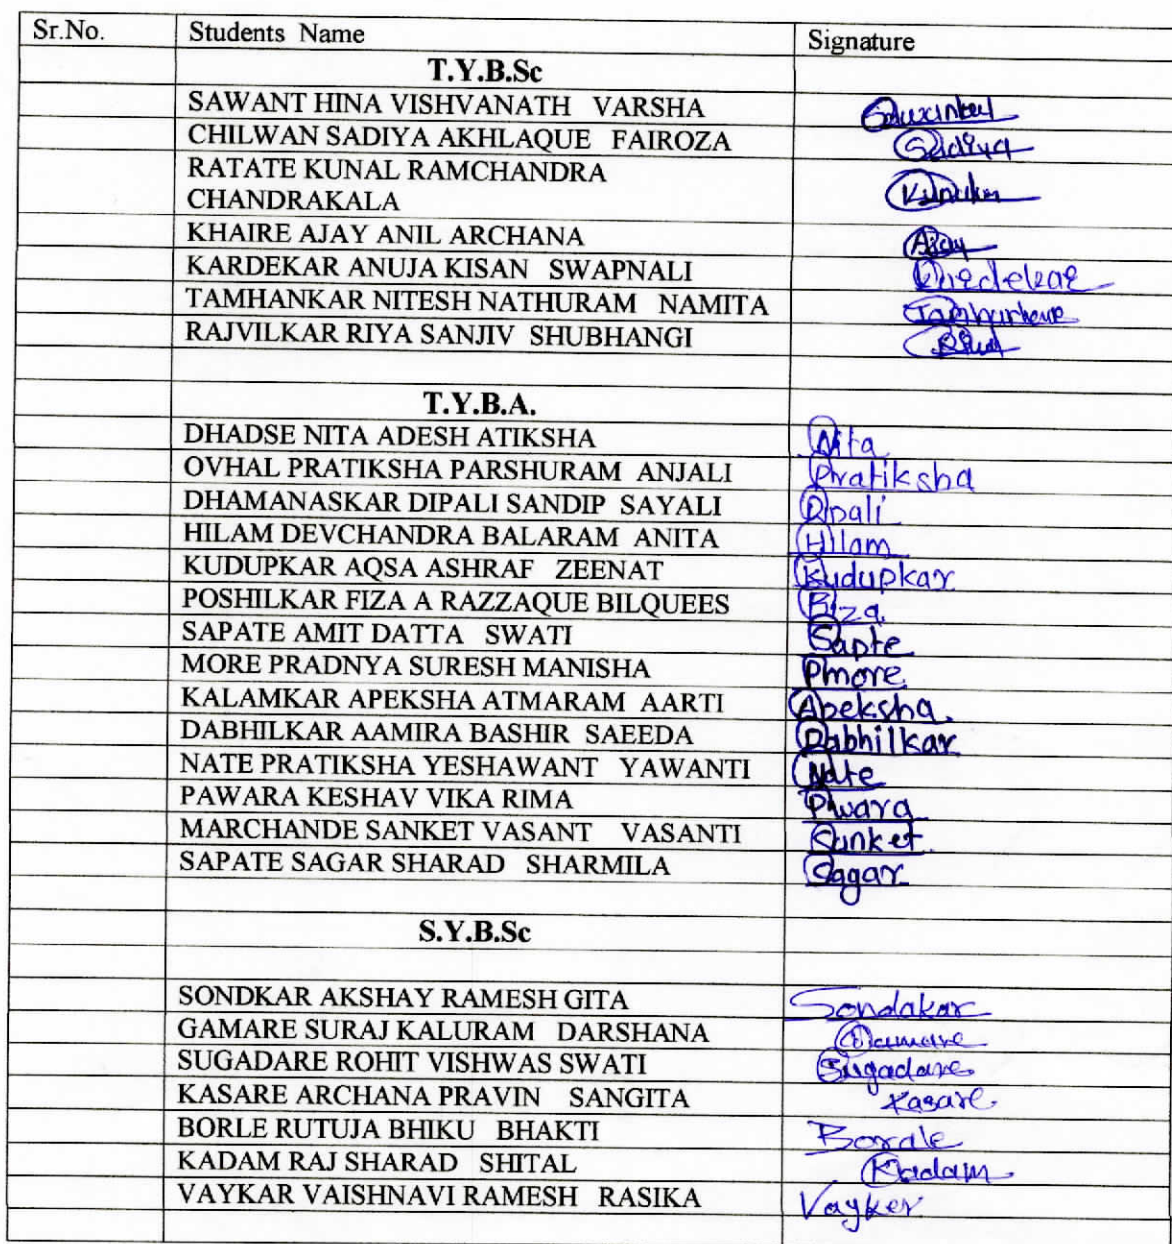 Sr.No. Students Name Signature
T.Y.B.Sc
SAWANT HINA VISHVANATH VARSHA
CHILWAN SADIYA AKHLAQUE FAIROZA Sadiya
RATATE KUNAL RAMCHANDRA
CHANDRAKALA
KHAIRE AJAY ANIL ARCHANA Ajay
KARDEKAR ANUJA KISAN SWAPNALI
TAMHANKAR NITESH NATHURAM NAMITA
RAJVILKAR RIYA SANJIV SHUBHANGI
T.Y.B.A.
DHADSE NITA ADESH ATIKSHA Nita
OVHAL PRATIKSHA PARSHURAM ANJALI Pratiksha
DHAMANASKAR DIPALI SANDIP SAYALI Dipali
HILAM DEVCHANDRA BALARAM ANITA Hilam
KUDUPKAR AQSA ASHRAF ZEENAT Kudupkar
POSHILKAR FIZA A RAZZAQUE BILQUEES Fiza
SAPATE AMIT DATTA SWATI Sapte
MORE PRADNYA SURESH MANISHA Pmore
KALAMKAR APEKSHA ATMARAM AARTI Apeksha
DABHILKAR AAMIRA BASHIR SAEEDA Dabhilkar
NATE PRATIKSHA YESHAWANT YAWANTI Nate
PAWARA KESHAV VIKA RIMA Pwara
MARCHANDE SANKET VASANT VASANTI Sanket
SAPATE SAGAR SHARAD SHARMILA Sagar
S.Y.B.Sc
SONDKAR AKSHAY RAMESH GITA Sondakar
GAMARE SURAJ KALURAM DARSHANA Gamare
SUGADARE ROHIT VISHWAS SWATI Sugadare
KASARE ARCHANA PRAVIN SANGITA Kasare
BORLE RUTUJA BHIKU BHAKTI Borale
KADAM RAJ SHARAD SHITAL Kadam
VAYKAR VAISHNAVI RAMESH RASIKA Vayker